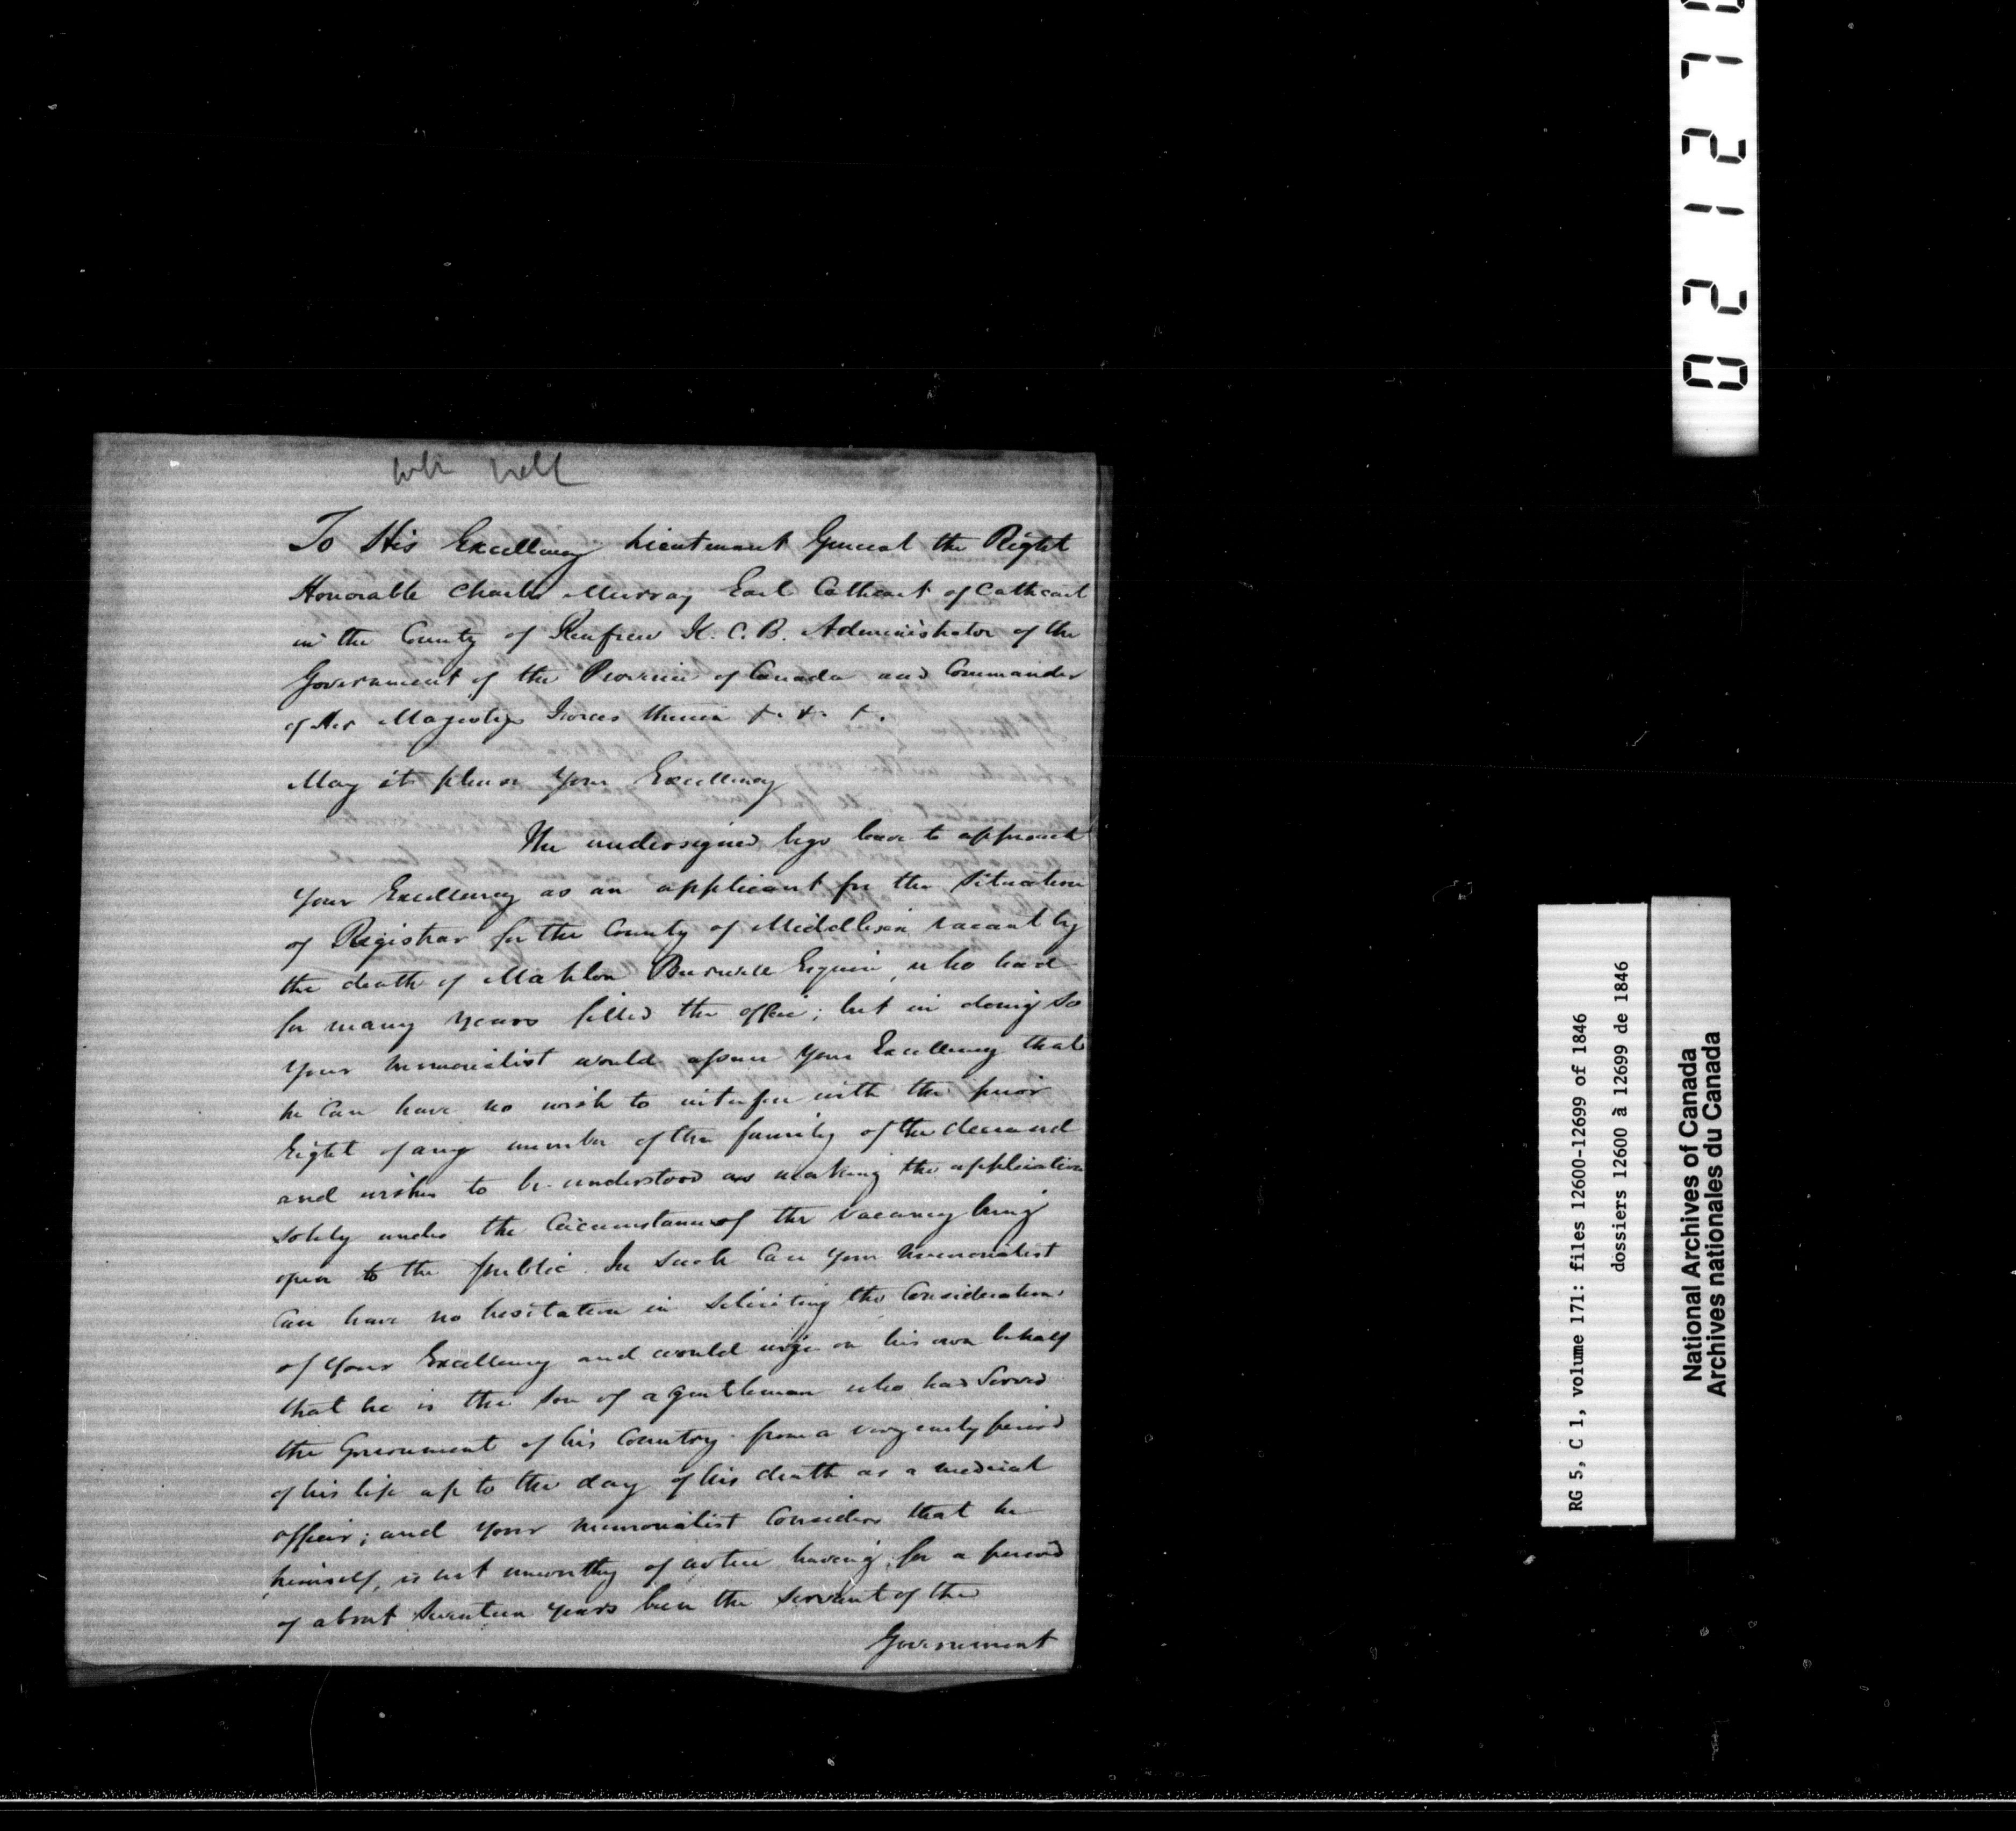 To His Excellency Lieutenant General the Right
Honorable Charles Murray Earl Cathcart of Cathcart
in the County of Renfrew K. C. B. Administrator of the
Government of the Province of Canada and Commander
of Her Majestys Forces therein &. &. &.
May it please Your Excellency
The undersigned begs leave to approach
Your Excellency as an applicant for the Situation
of Registrar for the County of Middlesex vacant by
the death of Mahlon Burwell Esquire, who had
for many years filled the office; but in doing so
your memorialist would assure Your Excellency that
he can have no wish to interfere with the prior
right of any member of the family of the deceased
and wishes to be understood as making the application
solely under the Circumstance of the vacancy being
open to the public. In such Case your memorialist
Can have no hesitation in soliciting the Consideration
of Your Excellency and would urge on his own behalf
that he is the son of a gentleman who had Served
the Government of his Country from a very early period
of his life up to the day of his death as a medical
officer; and your memorialist Considers that he
himself, is not unworthy of notice having for a period
of about Seventeen years been the servant of the
Government
021270
RG 5, C 1, volume 171: files 12600-12699 of 1846
dossiers 12600 à 12699 de 1846
National Archives of Canada
Archives nationales du Canada